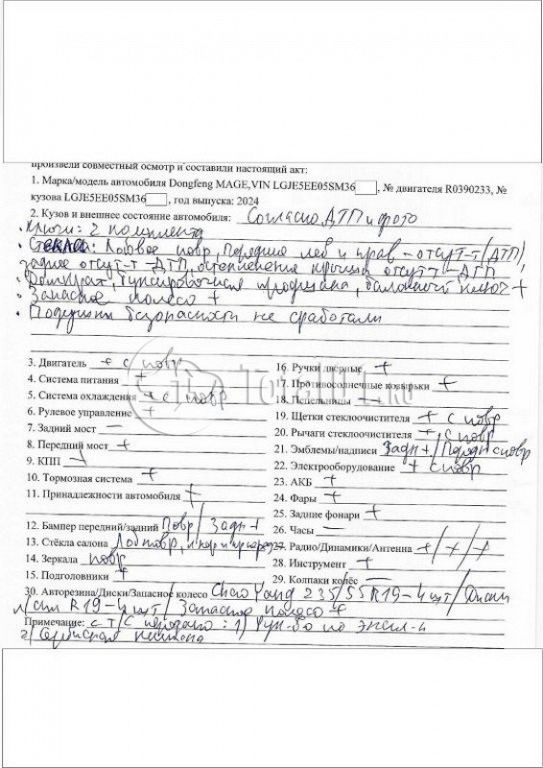 произвели совместный осмотр и составили настоящий акт:
1. Марка/модель автомобиля Dongfeng MAGE,VIN LGJE5EE05SM36 , № двигателя R0390233, №
кузова LGJE5EE05SM36 , год выпуска: 2024
2. Кузов и внешнее состояние автомобиля: Согласно ДТП и фото
• Ключи: 2 комплекта
• Стекла: Лобовое повр, Передние лев и прав - отсут-т (ДТП),
заднее отсут-т - ДТП, остекление крыши отсут-т - ДТП
• Домкрат, буксировочная проушина, балонный ключ +
• Запасное колесо +
• Подушки безопасности не сработали
3. Двигатель + с повр
4. Система питания +
5. Система охлаждения + с повр
6. Рулевое управление +
7. Задний мост —
8. Передний мост +
9. КПП +
10. Тормозная система +
11. Принадлежности автомобиля +
12. Бампер передний/задний Повр / Задн +
13. Стёкла салона Лоб повр,
14. Зеркала повр
15. Подголовники +
16. Ручки дверные +
17. Противосолнечные козырьки +
18. Пепельницы —
19. Щетки стеклоочистителя + с повр
20. Рычаги стеклоочистителя + с повр
21. Эмблемы/надписи Задн + / Передн с повр
22. Электрооборудование + с повр
23. АКБ +
24. Фары +
25. Задние фонари +
26. Часы —
27. Радио/Динамики/Антенна +/+/+
28. Инструмент +
29. Колпаки колёс —
30. Авторезина/Диски/Запасное колесо Chao Yang 235/55 R19 - 4 шт / Диски
R19 - 4 шт / Запасное колесо +
Примечание: с Т/С передано: 1) по экспл-и
2) Сервисная книжка